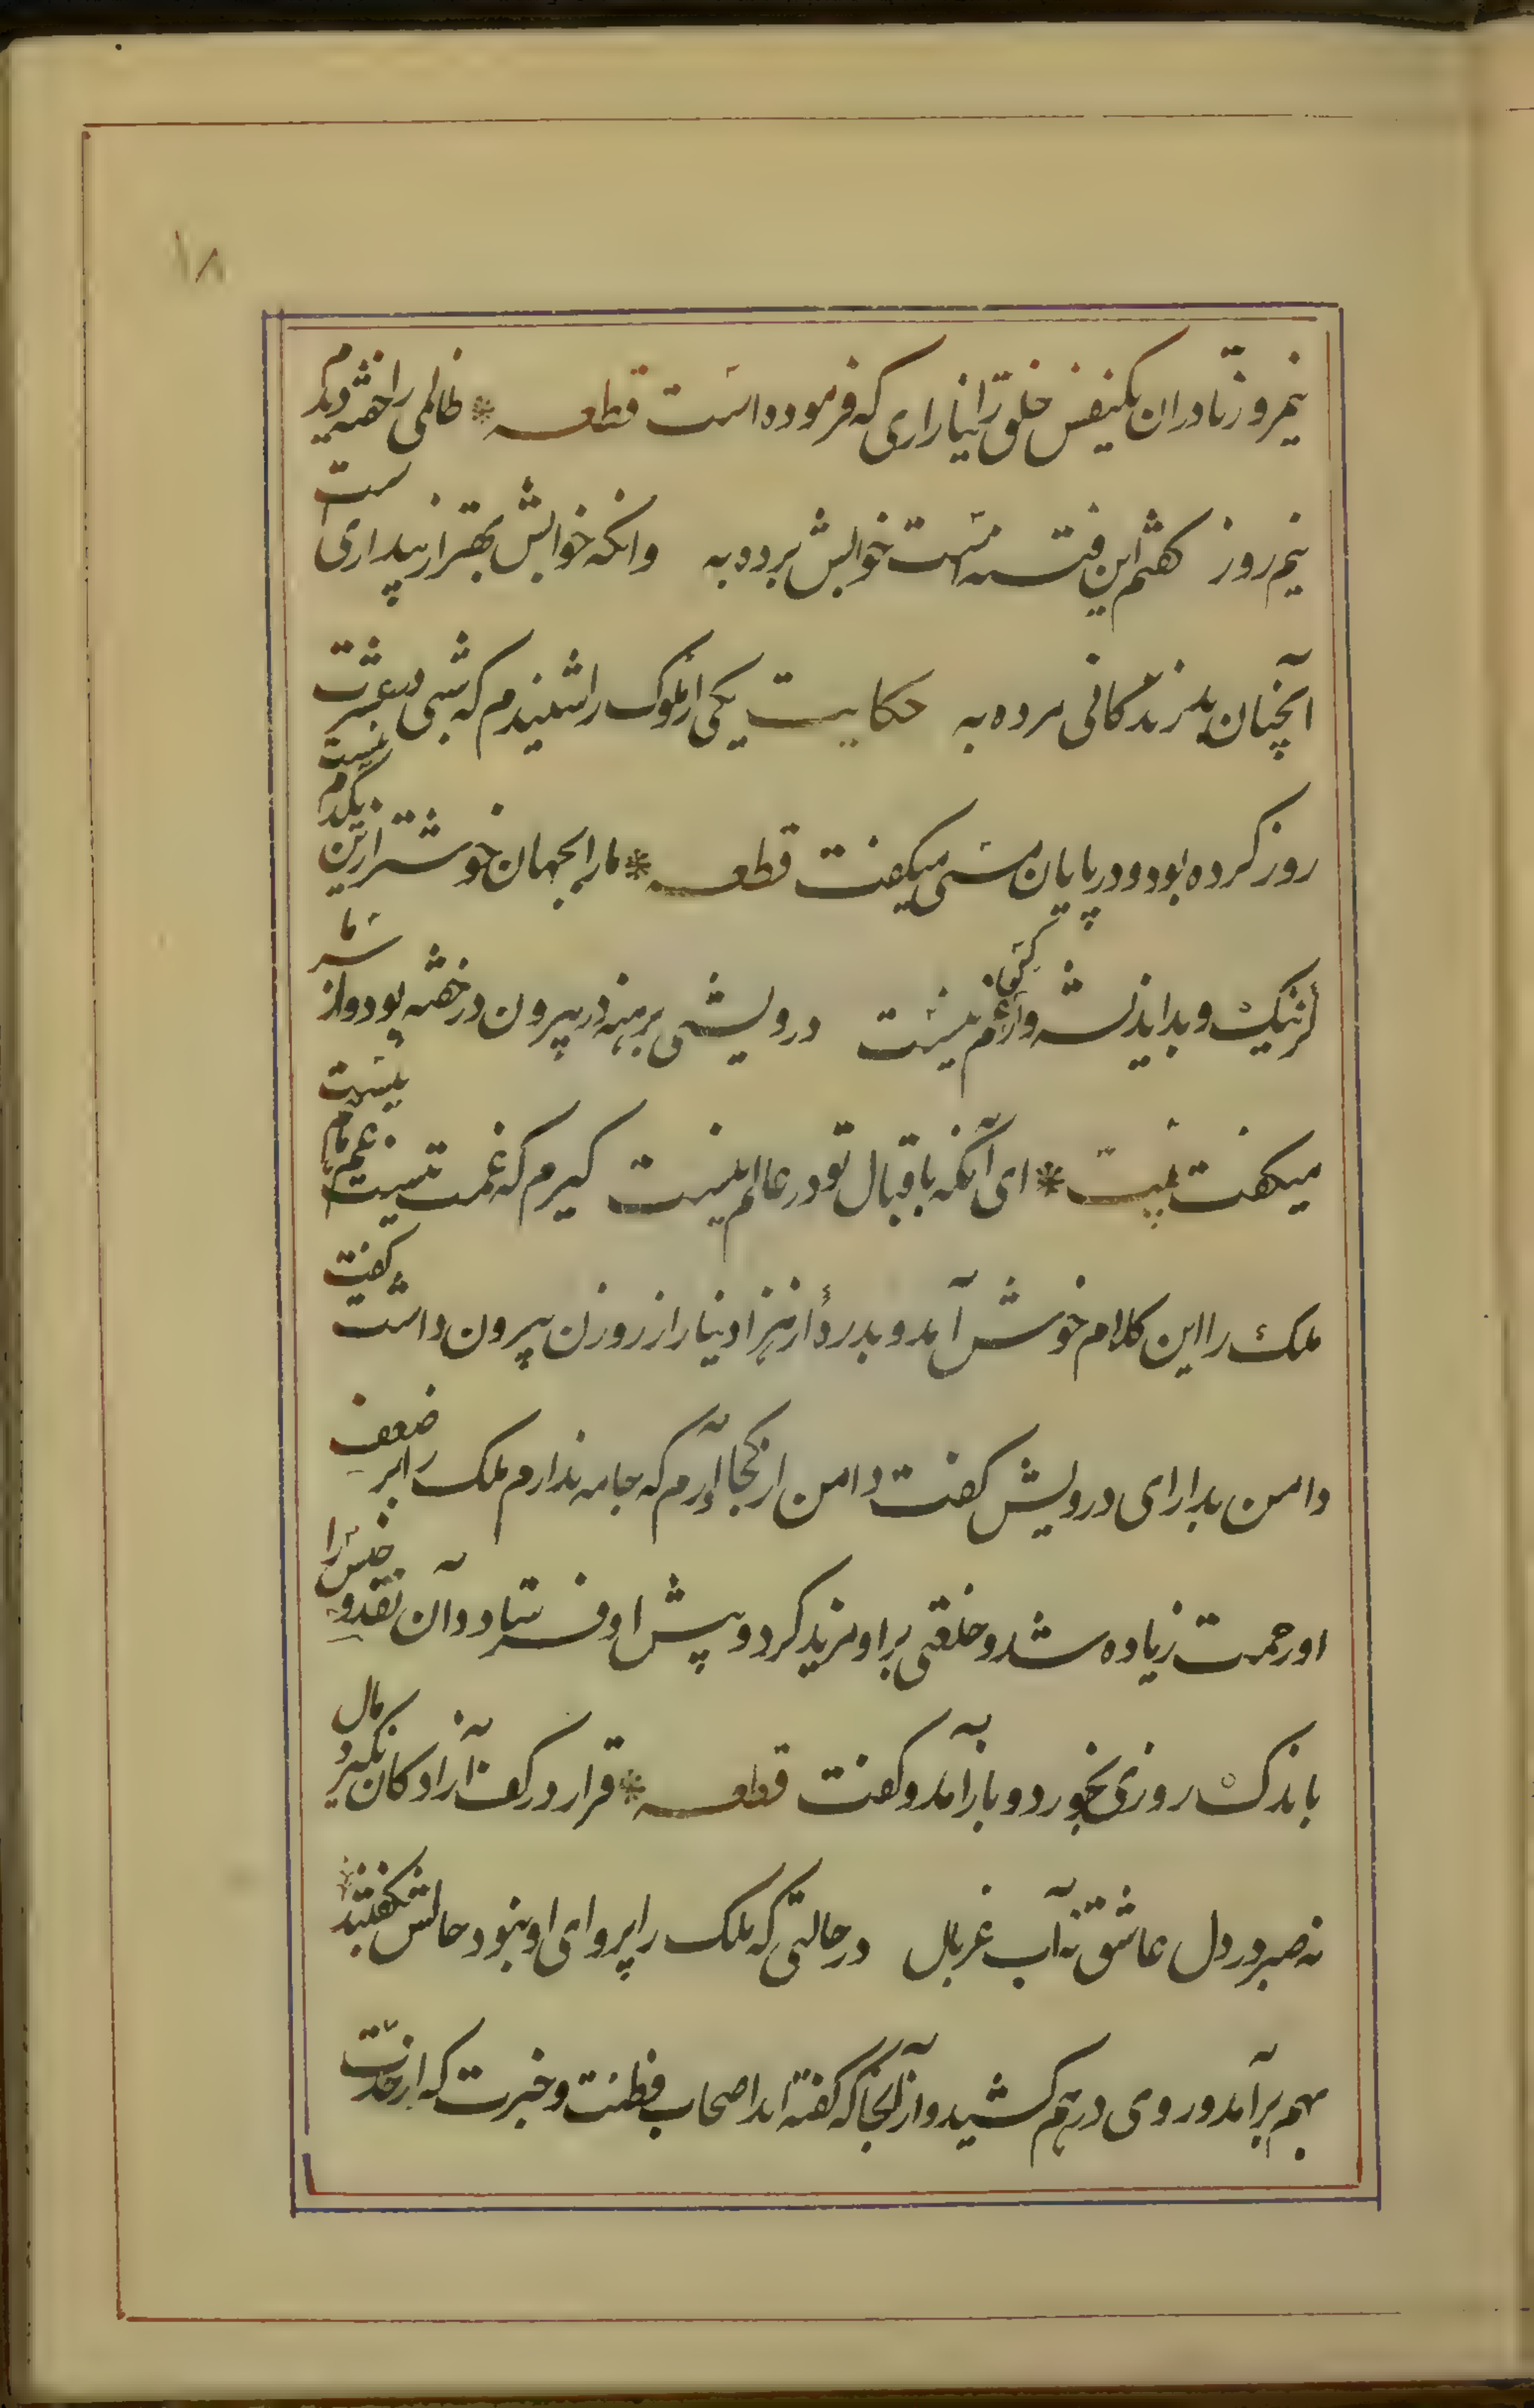 ۱۸
نیمروز تا دران یکنفس خلق را نیازاری که فرموده است قطعه * ظالمی را خفته دیدم
نیم روز گفتم این فتنه است خوابش برده به وانکه خوابش بهتر از بیداری است
آنچنان بد زندگانی مرده به حکایت یکی از ملوک را شنیدم که شبی در عشرت
روز کرده بود و در پایان مستی میگفت قطعه * ما را بجهان خوشتر ازین یکدم نیست
کز نیک و بد اندیشه و از کس غم نیست درویشی برهنه در بیرون در خفته بود و از سرما
میگفت بیت * ای آنکه باقبال تو در عالم نیست گیرم که غمت نیست غم ما هم نیست
ملک را این کلام خوش آمد و بدرهٔ از هزار دینار از روزن بیرون داشت گفت
دامن بدار ای درویش گفت دامن از کجا آرم که جامه ندارم ملک را بر ضعف
او رحمت زیاده شد و خلعتی بر او مزید کرد و پیش او فرستاد و آن نقد و جنس را
باندک روزی بخورد و باز آمد و گفت قطعه * قرار در کف آزادگان نگیرد مال
نه صبر در دل عاشق نه آب غربال در حالتی که ملک را پروای او نبود حالش بگفتند
بهم برآمد و روی درهم کشید و از آنجا که گفته اند اصحاب فطنت و خبرت که از حدت